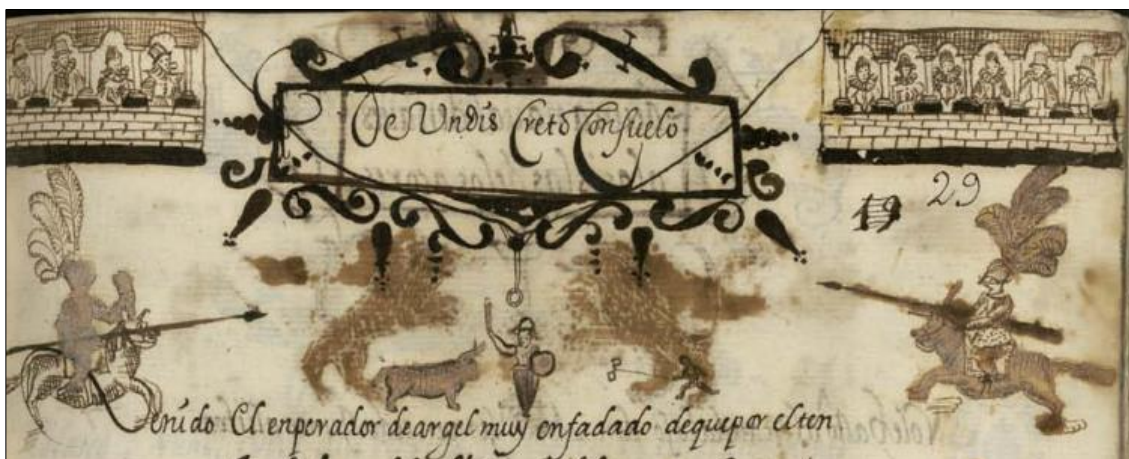 De Un dis Creto Consuelo
29
Venido El enperador de argel muy enfadado de que por el ten